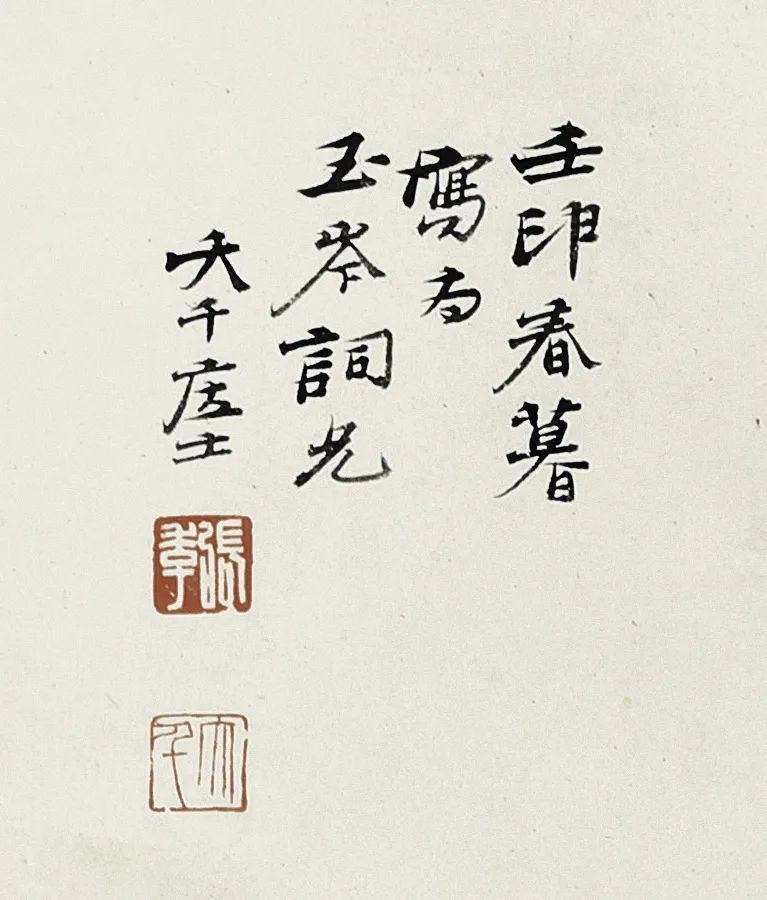 壬申春暮
寫為
玉岑詞兄
大千居士
張季
大千